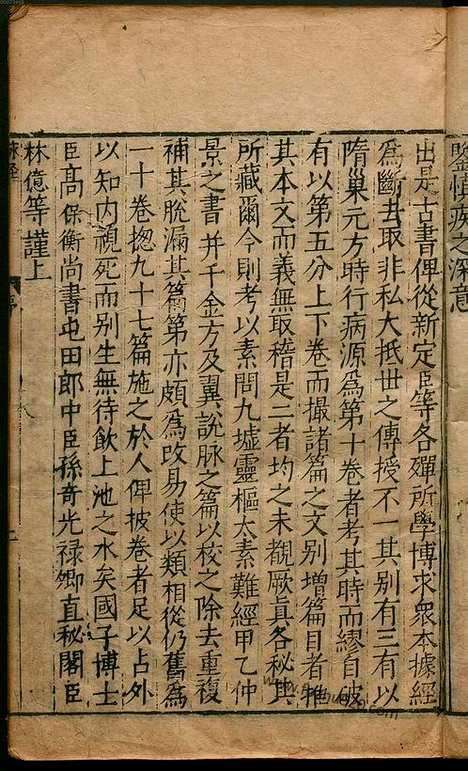 鑒慎疾之深意
出是古書俾從新定臣等各殫所學博求衆本據經
爲斷去取非私大抵世之傳授不一其别有三有以
隋巢元方時行病源爲第十卷者考其時而繆自破
有以第五分上下卷而撮諸篇之文别增篇目者推
其本文而義無取稽是二者均之未覩厥眞各秘其
所藏爾今則考以素問九墟靈樞太素難經甲乙仲
景之書并千金方及翼說脉之篇以校之除去重複
補其脫漏其篇第亦頗爲改易使以類相從仍舊爲
一十卷揔九十七篇施之於人俾披卷者足以占外
以知内視死而别生無待飲上池之水矣國子博士
臣高保衡尚書屯田郎中臣孫奇光祿卿直秘閣臣
林億等謹上
脉經 序